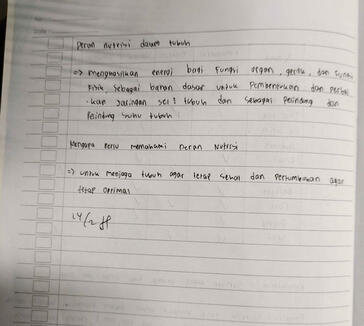 Peran nutrisi dalam tubuh
=> menghasilkan energi bagi fungsi organ, gerak, dan fungsi
fisik, sebagai bahan dasar untuk Pembentukan dan Perbai
-kan jaringan sel² tubuh dan sebagai Pelindung dan
Pelindung suhu tubuh
Mengapa Perlu memahami Peran Nutrisi
=> untuk menjaga tubuh agar tetap sehat dan Pertumbuhan agar
tetap optimal